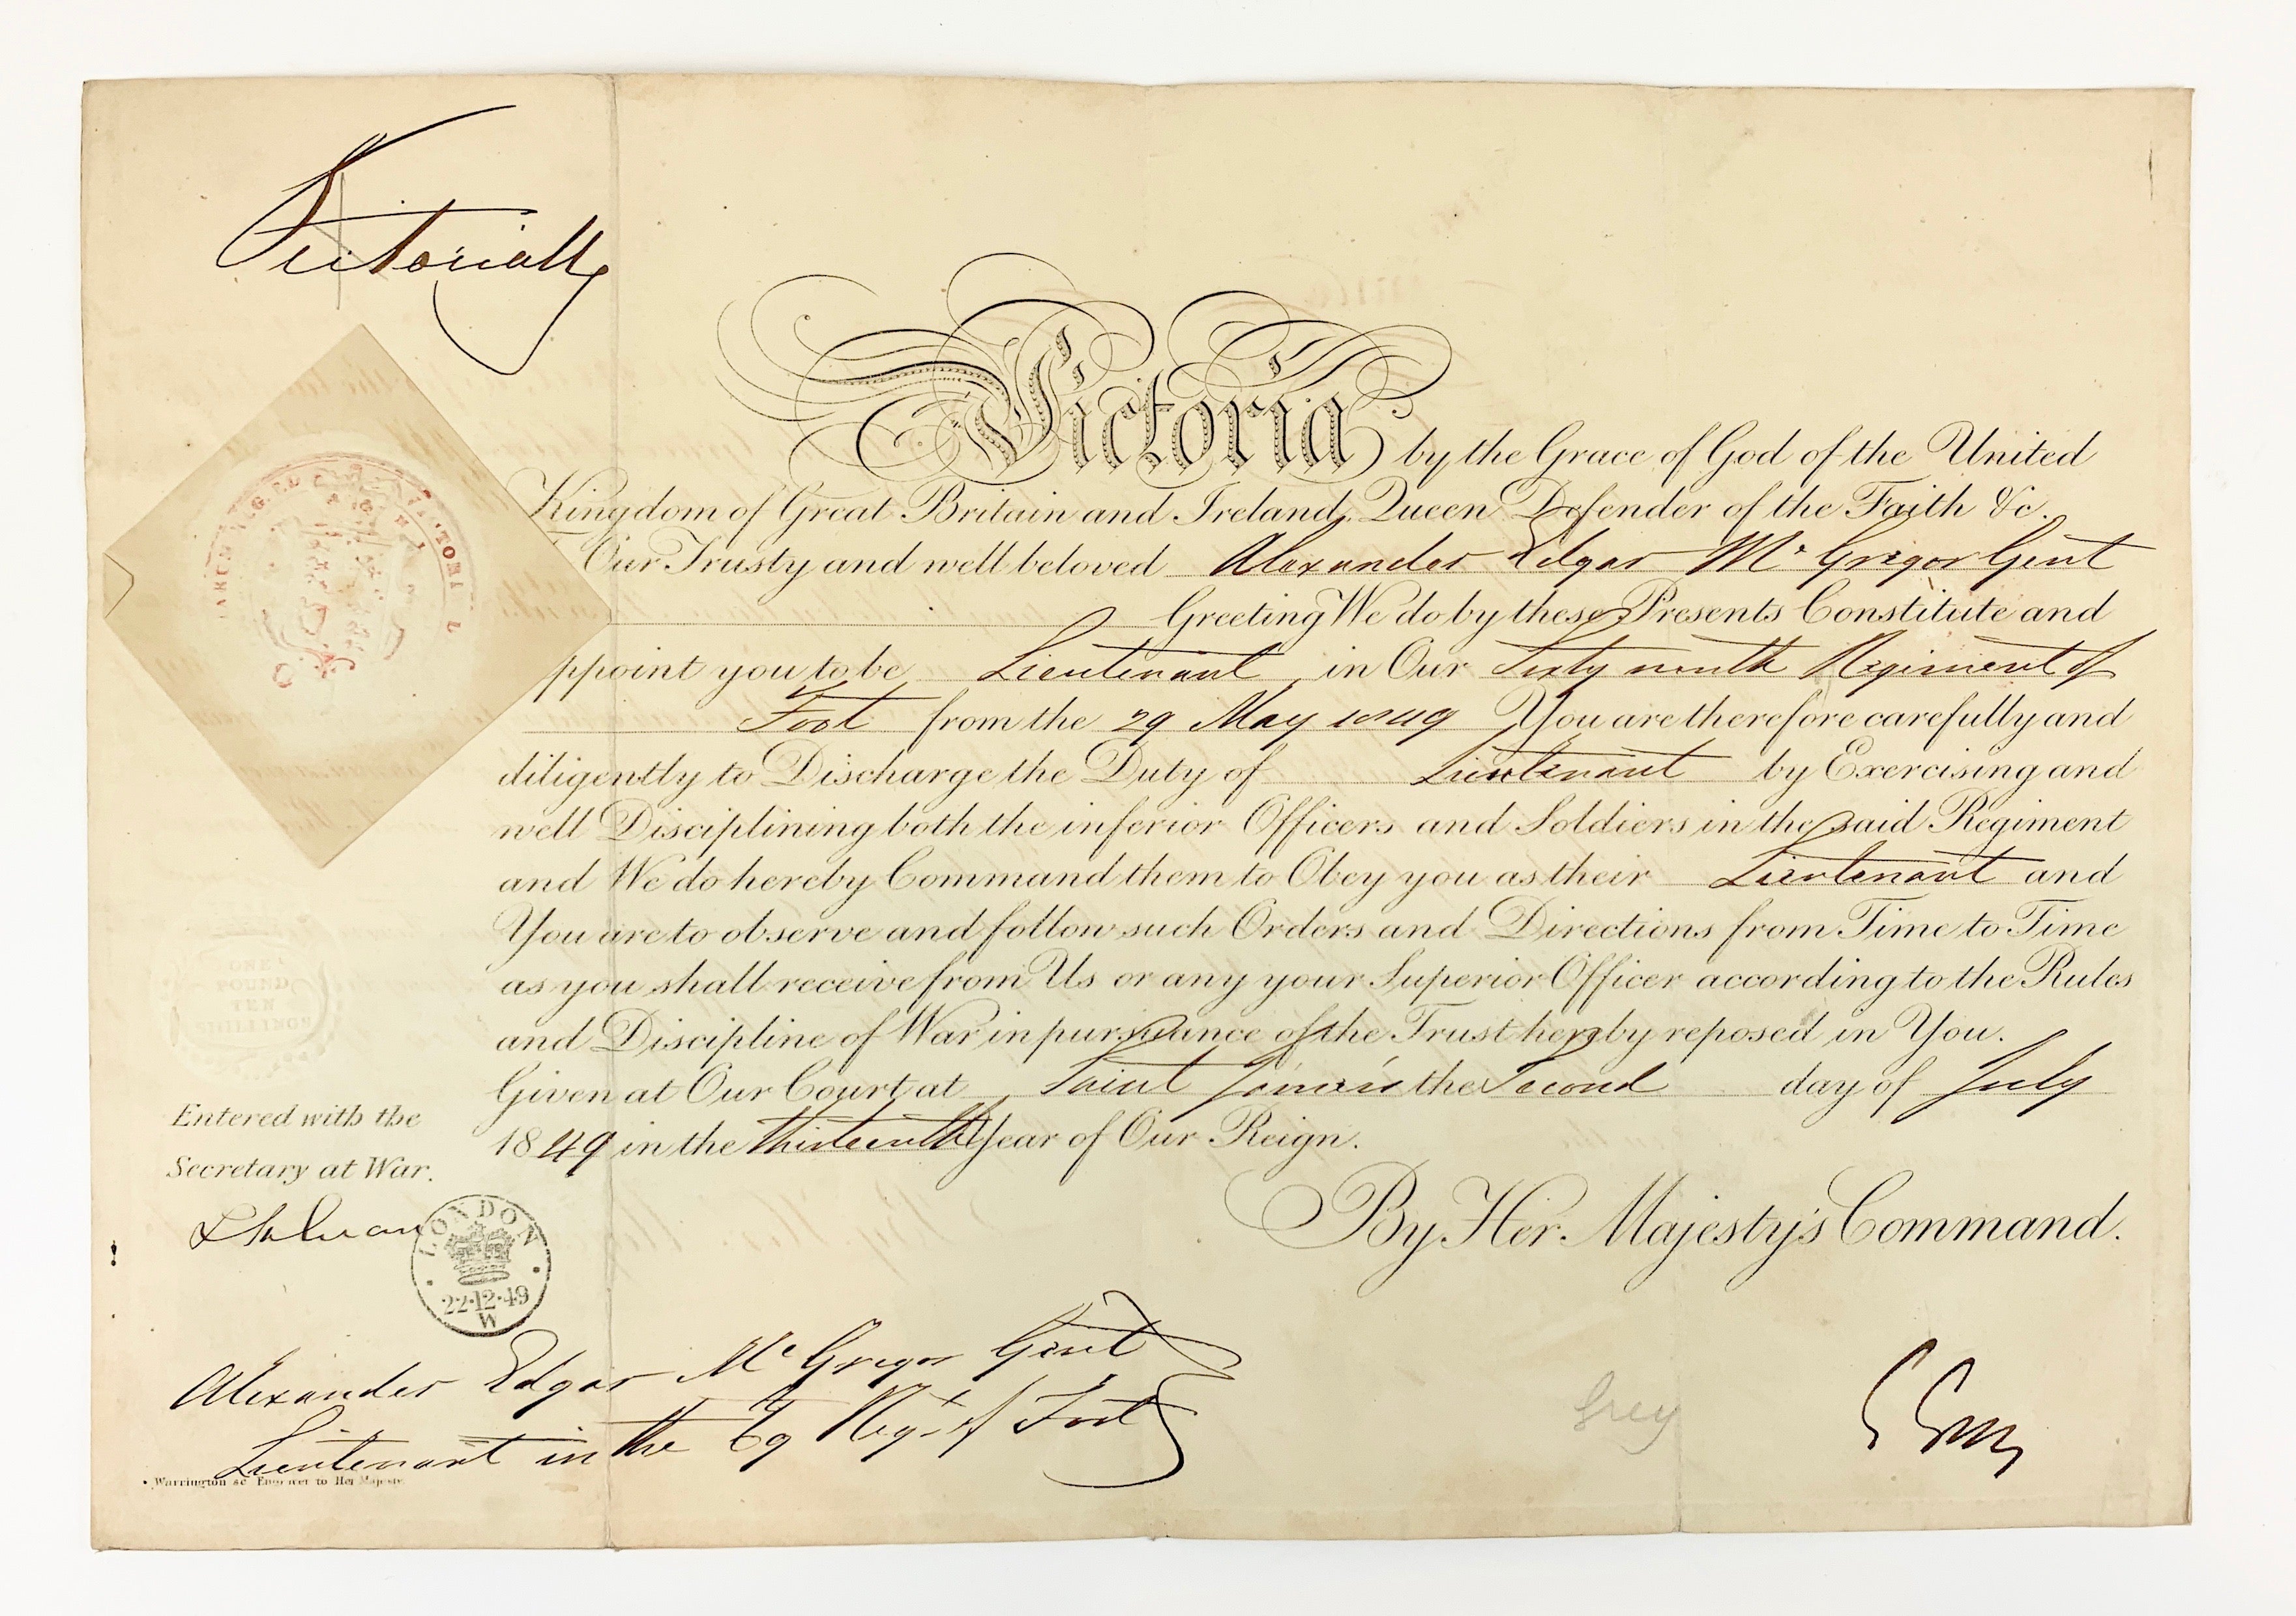 Victoria R
Victoria by the Grace of God of the United
Kingdom of Great Britain and Ireland, Queen Defender of the Faith &c.
Our Trusty and well beloved Alexander Edgar McGregor Gent
Greeting We do by these Presents Constitute and
ppoint you to be Lieutenant in Our Sixty ninth Regiment of
Foot from the 29 May 1849 You are therefore carefully and
diligently to Discharge the Duty of Lieutenant by Exercising and
well Disciplining both the inferior Officers and Soldiers in the said Regiment
and We do hereby Command them to Obey you as their Lieutenant and
You are to observe and follow such Orders and Directions from Time to Time
as you shall receive from Us or any your Superior Officer according to the Rules
and Discipline of War in pursuance of the Trust hereby reposed in You.
Given at Our Court at Saint James's the Second day of July
1849 in the thirteenth Year of Our Reign.
By Her Majesty's Command.
ONE
POUND
TEN
SHILLINGS
Entered with the
Secretary at War.
LONDON
22·12·49
W
Alexander Edgar McGregor Gent
Lieutenant in the 69 Regt of Foot
Grey
G Grey
Warrington sc Engraver to Her Majesty